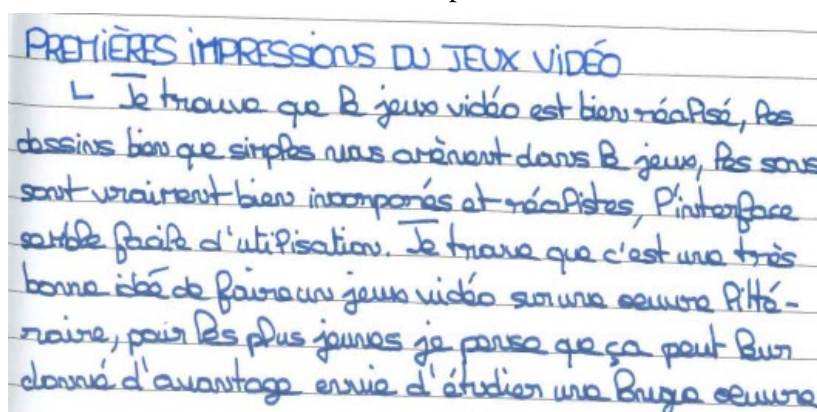 PREMIÈRES IMPRESSIONS DU JEUX VIDÉO
Je trouve que le jeux vidéo est bien réalisé, les
dessins bien que simples nous amènent dans le jeux, les sons
sont vraiment bien incomporés et réalistes, l'interface
semble facile d'utilisation. Je trouve que c'est une très
bonne idée de faire un jeux vidéo sur une oeuvre litté-
raire, pour les plus jeunes je pense que ça peut leur
donné d'avantage envie d'étudier une longue oeuvre